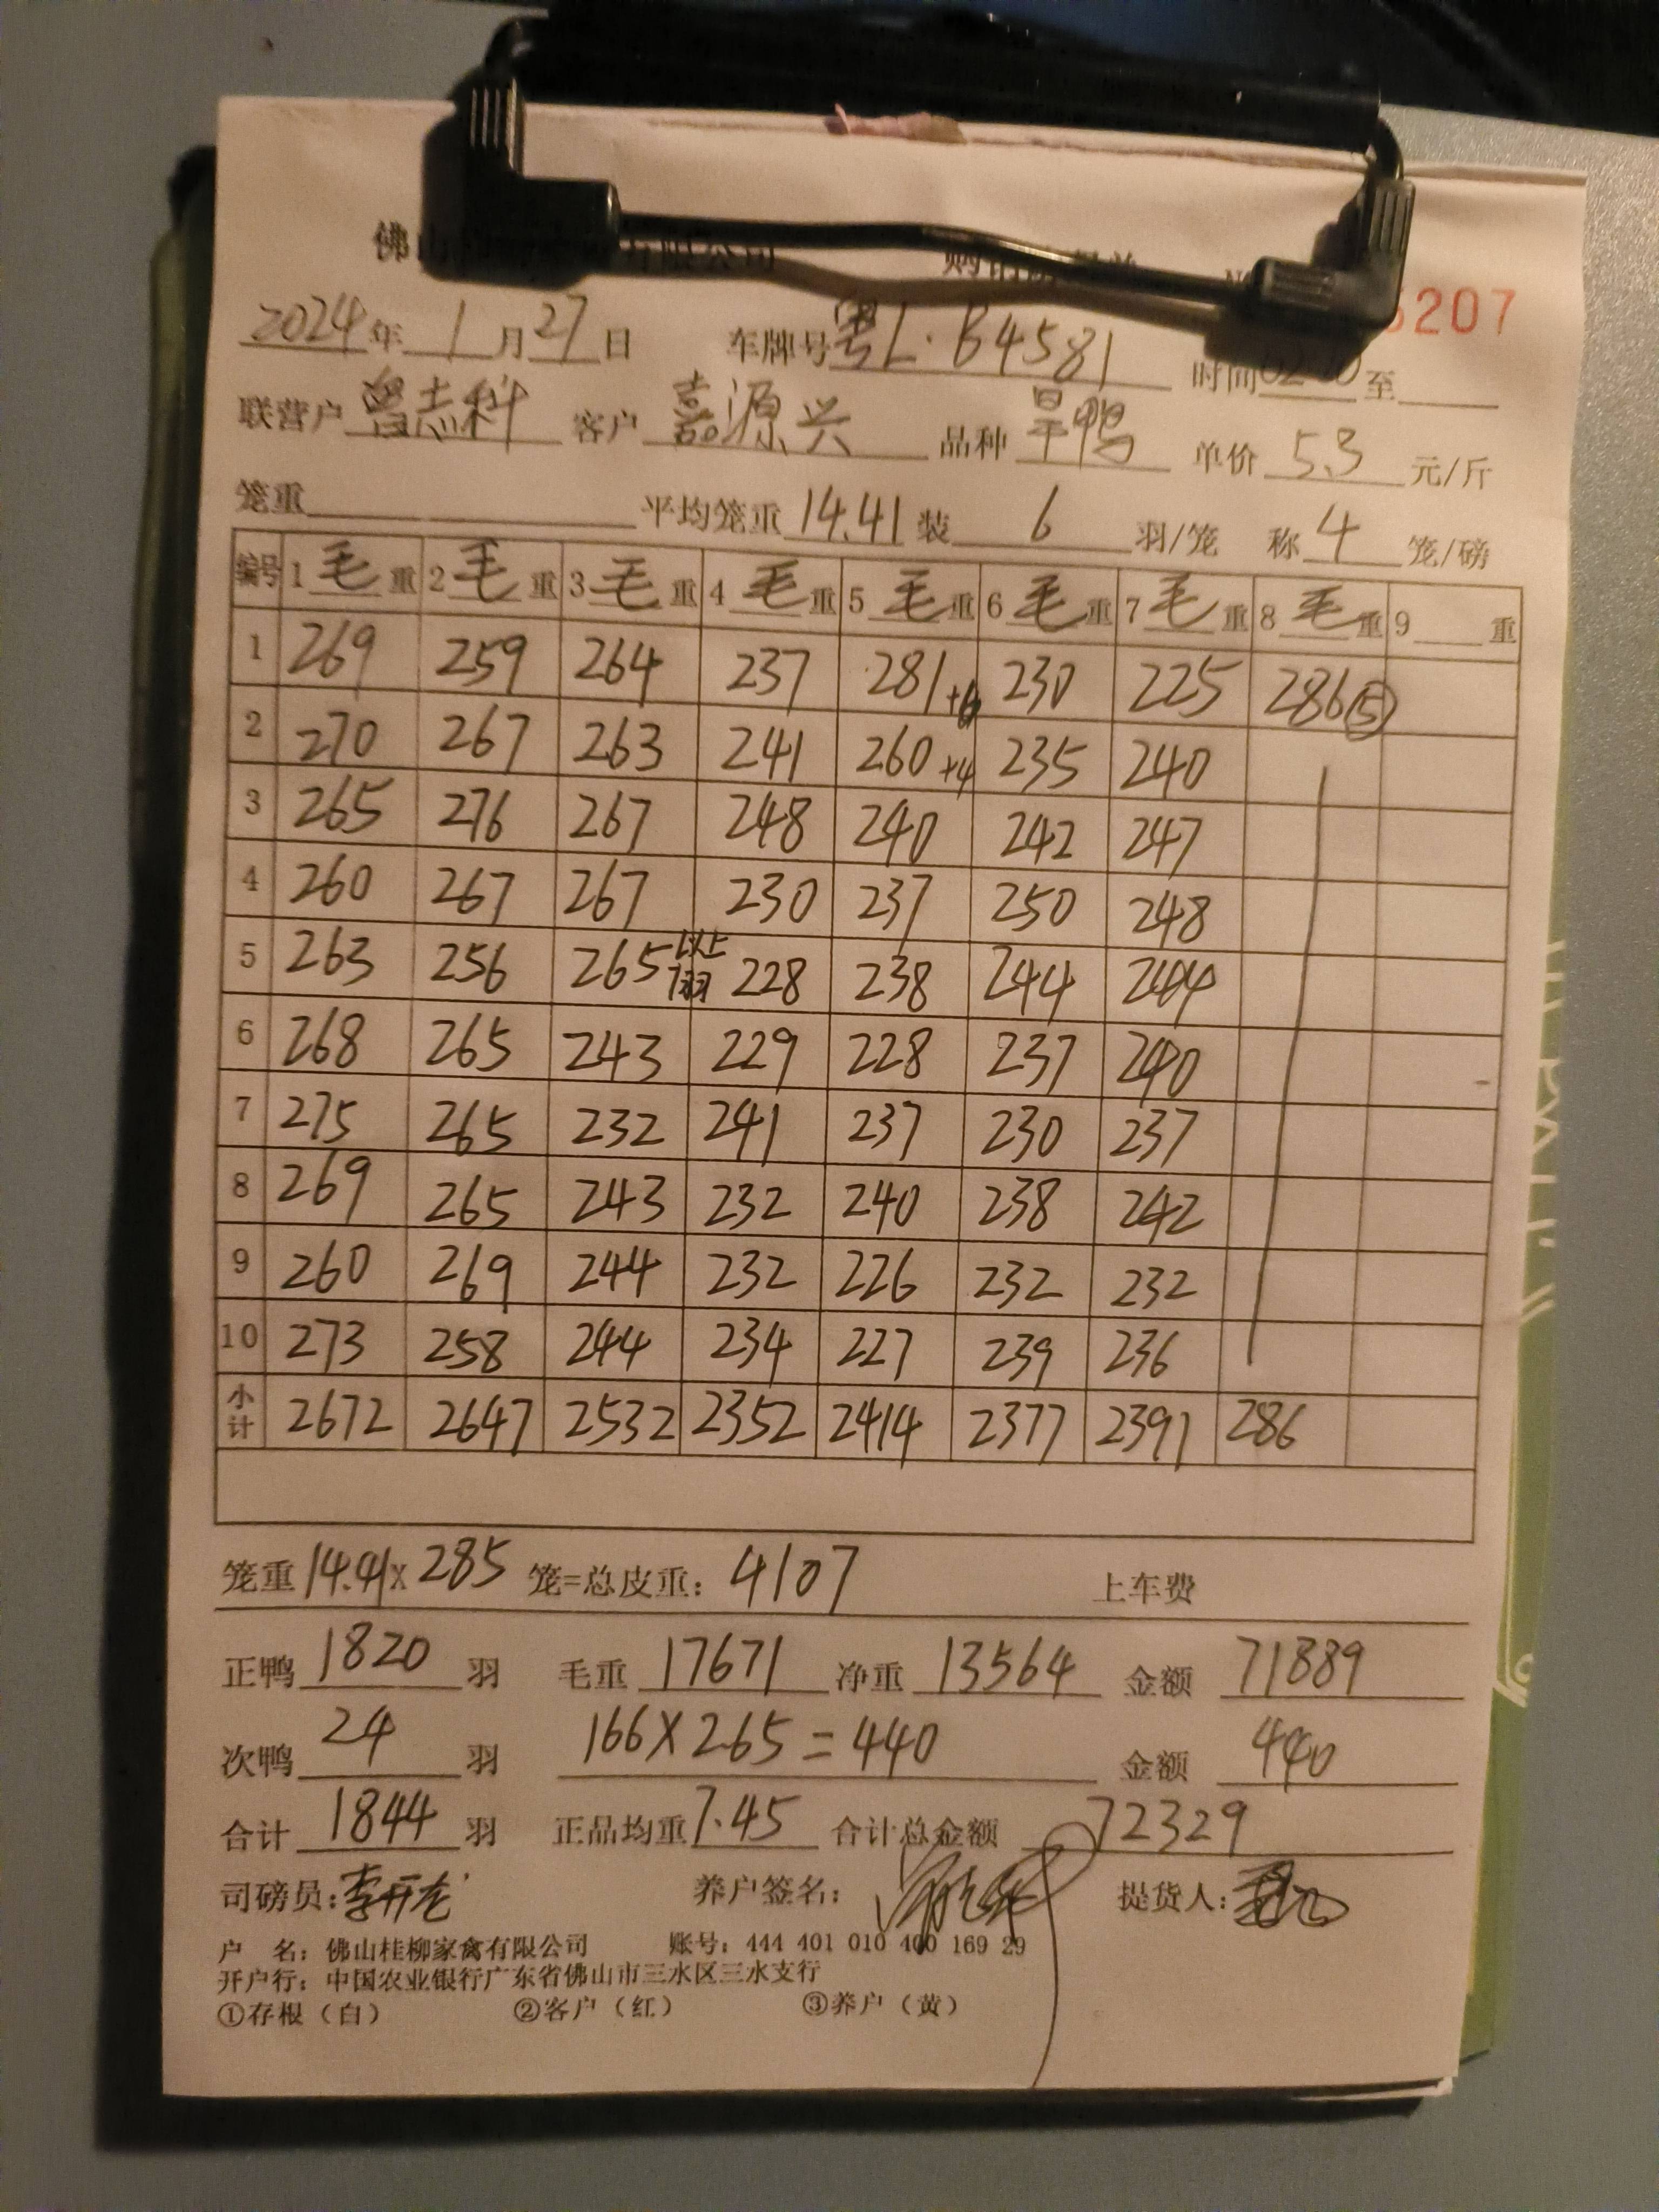 佛山 有限公司 5207
2024年1月27日 车牌号粤L·B4581 时间 至
联营户曾志科 客户嘉源兴 品种旱鸭 单价5.3元/斤
笼重 平均笼重14.41装6羽/笼 称4笼/磅
编号 1毛重 2毛重 3毛重 4毛重 5毛重 6毛重 7毛重 8毛重 9重
1 269 259 264 237 281 230 225 286⑤
2 270 267 263 241 260+4 235 240
3 265 276 267 248 240 242 247
4 260 267 267 230 237 250 248
5 263 256 265 以上7羽 228 238 244 244
6 268 265 243 229 228 237 240
7 275 265 232 241 237 230 237
8 269 265 243 232 240 238 242
9 260 269 244 232 226 232 232
10 273 258 244 234 227 239 236
小计 2672 2647 2532 2352 2414 2377 2391 286
笼重14.41×285笼=总皮重:4107 上车费
正鸭1820羽 毛重17671 净重13564 金额71889
次鸭24羽 166×2.65=440 金额440
合计1844羽 正品均重7.45 合计总金额72329
司磅员:李开龙 养户签名: 提货人:
户 名:佛山桂柳家禽有限公司 账号:444 401 010 400 169 29
开户行:中国农业银行广东省佛山市三水区三水支行
①存根（白） ②客户（红） ③养户（黄）